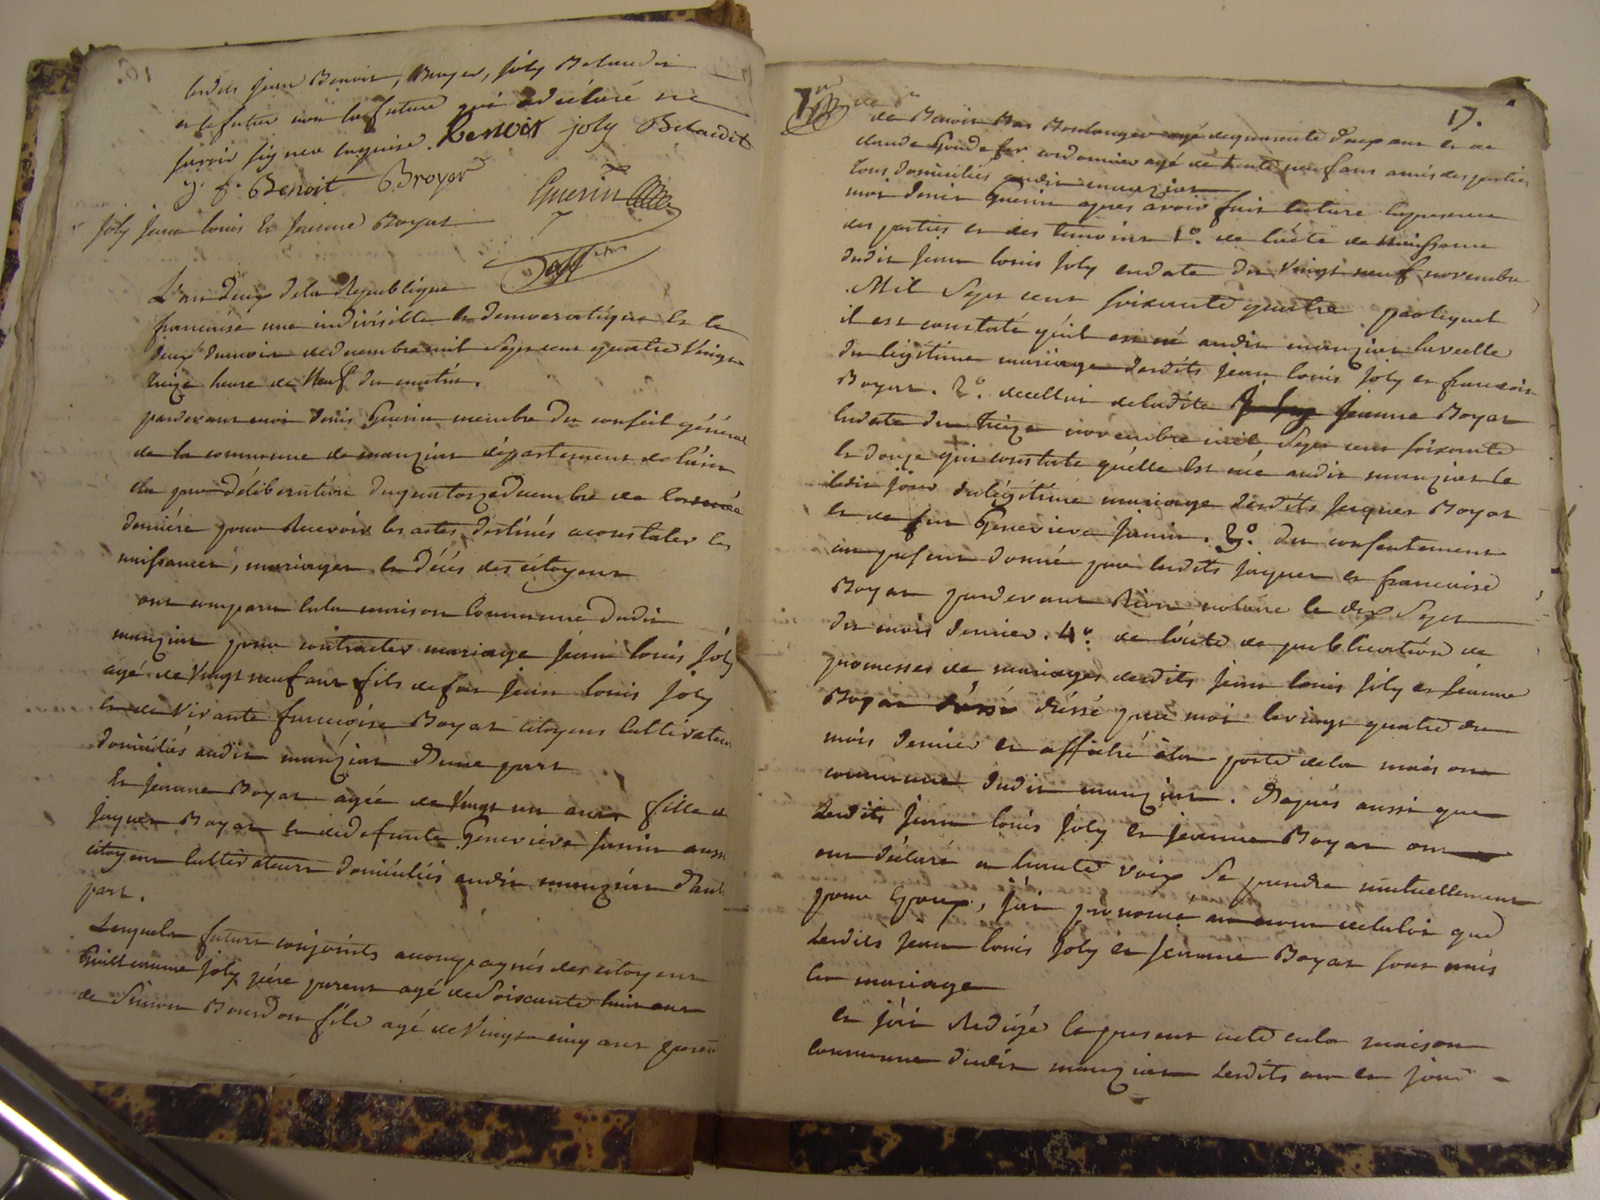 lesdits jean Benoit, Broyer, joly Belaudit
et le futur non la future qui a déclaré ne
savoir signer enquise. Benoit joly Belaudit
j. f. Benoit Broyer Guerin
joly jean louis et jeanne Boyat
L'an deux de la Republique
francaise une indivisible et democratique et le
deux nivoise mil Sept cent quatre Vingt
treize heure de Neuf du matin.
pardevant moi denis Guerin membre du conseil général
de la commune de manziat département de l'ain
élu par délibération du quatorze décembre de l'année
derniere pour Recevoir les actes destinés a constater les
naissances, mariages et décés des citoyens
ont comparu en la maison Commune dudit
manziat pour contracter mariage jean louis joly
agé de Vingt neuf ans fils de feu jean louis joly
et de Vivante francoise Boyat citoyens Cultivateurs
domiciliés audit manziat d'une part
et jeanne Boyat agée de Vingt un ans fille de
jaques Boyat et de defunte Genevieve janin aussi
citoyens Cultivateurs domiciliés audit manziat d'autre
part.
Lesquels futurs conjoints accompagnés des citoyens
Guillaume joly pere parent agé de Soixante huit ans
de Simon Bourdon fils agé de Vingt cinq ans parent
17.
de Benoit Bas Boulanger agé de quarante deux ans et de
claude cordonnier agé de trente neuf ans amis des parties
tous domiciliés audit manziat
moi denis Guerin apres avoir fait lecture en presence
des parties et des temoins 1°. de l'acte de Naissance
dudit jean louis joly en date du Vingt neuf novembre
Mil Sept cent soixante quatre par lequel
il est constaté qu'il est né audit manziat la veille
du légitime mariage desdits jean louis joly et francoise
Boyat. 2°. de celui de ladite jeanne Boyat
en date du treize novembre mil Sept cent soixante
et douze qui constate qu'elle est née audit manziat le
dit jour du légitime mariage desdits jacques Boyat
et de feu Genevieve janin. 3°. du consentement
au present donné par lesdits jaques et francoise
Boyat pardevant notaire le dix Sept
du mois dernier. 4°. de l'acte de publication de
promesses de mariages desdits jean louis joly et jeanne
Boyat dréssé par moi le vingt quatre du
mois dernier et affiché a la porte de la maison
commune dudit manziat. Dapres aussi que
Lesdits jean louis joly et jeanne Boyat ont
ont déclaré a haute voix Se prendre mutuellement
pour Epoux, j'ai prononcé au nom de la loi que
Lesdits jean louis joly et jeanne Boyat sont unis
en mariage
et j'ai Redigé le present acte en la maison
commune dudit manziat Lesdits an et jour